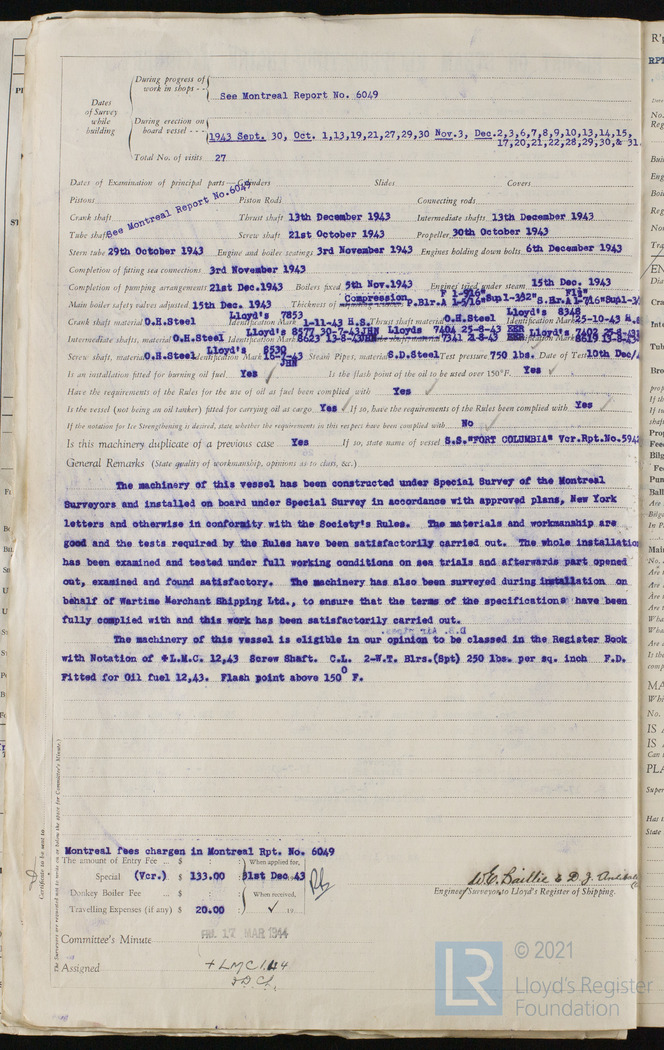 During progress of work in shops - - See Montreal Report No. 6049
Dates of Survey while building
During erection on board vessel - - - 1943 Sept. 30, Oct. 1,13,19,21,27,29,30 Nov.3, Dec.2,3,6,7,8,9,10,13,14,15,
17,20,21,22,28,29,30,& 31.
Total No. of visits 27
Dates of Examination of principal parts—Cylinders Slides Covers
Pistons Piston Rods Connecting rods
See Montreal Report No.6049
Crank shaft Thrust shaft 13th December 1943 Intermediate shafts 13th December 1943
Tube shaft Screw shaft 21st October 1943 Propeller 30th October 1943
Stern tube 29th October 1943 Engine and boiler seatings 3rd November 1943 Engines holding down bolts 6th December 1943
Completion of fitting sea connections 3rd November 1943
Completion of pumping arrangements 21st Dec.1943 Boilers fixed 5th Nov.1943 Engines tried under steam 15th Dec. 1943
Main boiler safety valves adjusted 15th Dec. 1943 Thickness of Compression
Crank shaft material O.H.Steel Identification Mark Lloyd's 7853 1-11-43 H.S. Thrust shaft material O.H.Steel Identification Mark Lloyd's 8348 25-10-43
Intermediate shafts, material O.H.Steel Identification Marks Lloyd's 8577 30-7-43 JHN Lloyds 7404 25-8-43 Lloyd's 7402
8623 13-8-43 7341 21-8-43
Screw shaft, material O.H.Steel Identification Mark Lloyd's 8530 16-7-43 JHN Steam Pipes, material S.D.Steel Test pressure 750 lbs. Date of Test 10th Dec/
Is an installation fitted for burning oil fuel Yes Is the flash point of the oil to be used over 150°F. Yes
Have the requirements of the Rules for the use of oil as fuel been complied with Yes
Is the vessel (not being an oil tanker) fitted for carrying oil as cargo Yes If so, have the requirements of the Rules been complied with Yes
If the notation for Ice Strengthening is desired, state whether the requirements in this respect have been complied with No
Is this machinery duplicate of a previous case Yes If so, state name of vessel S.S."FORT COLUMBIA" Vcr.Rpt.No.594
General Remarks (State quality of workmanship, opinions as to class, &c.)
The machinery of this vessel has been constructed under Special Survey of the Montreal
Surveyors and installed on board under Special Survey in accordance with approved plans, New York
letters and otherwise in conformity with the Society's Rules. The materials and workmanship are
good and the tests required by the Rules have been satisfactorily carried out. The whole installation
has been examined and tested under full working conditions on sea trials and afterwards part opened
out, examined and found satisfactory. The machinery has also been surveyed during installation on
behalf of Wartime Merchant Shipping Ltd., to ensure that the terms of the specifications have been
fully complied with and this work has been satisfactorily carried out.
The machinery of this vessel is eligible in our opinion to be classed in the Register Book
with Notation of +L.M.C. 12,43 Screw Shaft. C.L. 2-W.T. Blrs.(Spt) 250 lbs. per sq. inch F.D.
Fitted for Oil fuel 12,43. Flash point above 150° F.
Montreal fees chargen in Montreal Rpt. No. 6049
The amount of Entry Fee ... $ : When applied for,
Special (Vcr.) $ 133.00 31st Dec. 43
Donkey Boiler Fee ... $ : When received,
Travelling Expenses (if any) $ 20.00 19
W.C. Baillie & D.J.
Engineer Surveyors to Lloyd's Register of Shipping.
Committee's Minute FRI. 17 MAR 1944
Assigned + LMC 1.44
Certificate to be sent to
The Surveyors are requested not to write on or below the space for Committee's Minute.
LR
© 2021
Lloyd's Register
Foundation